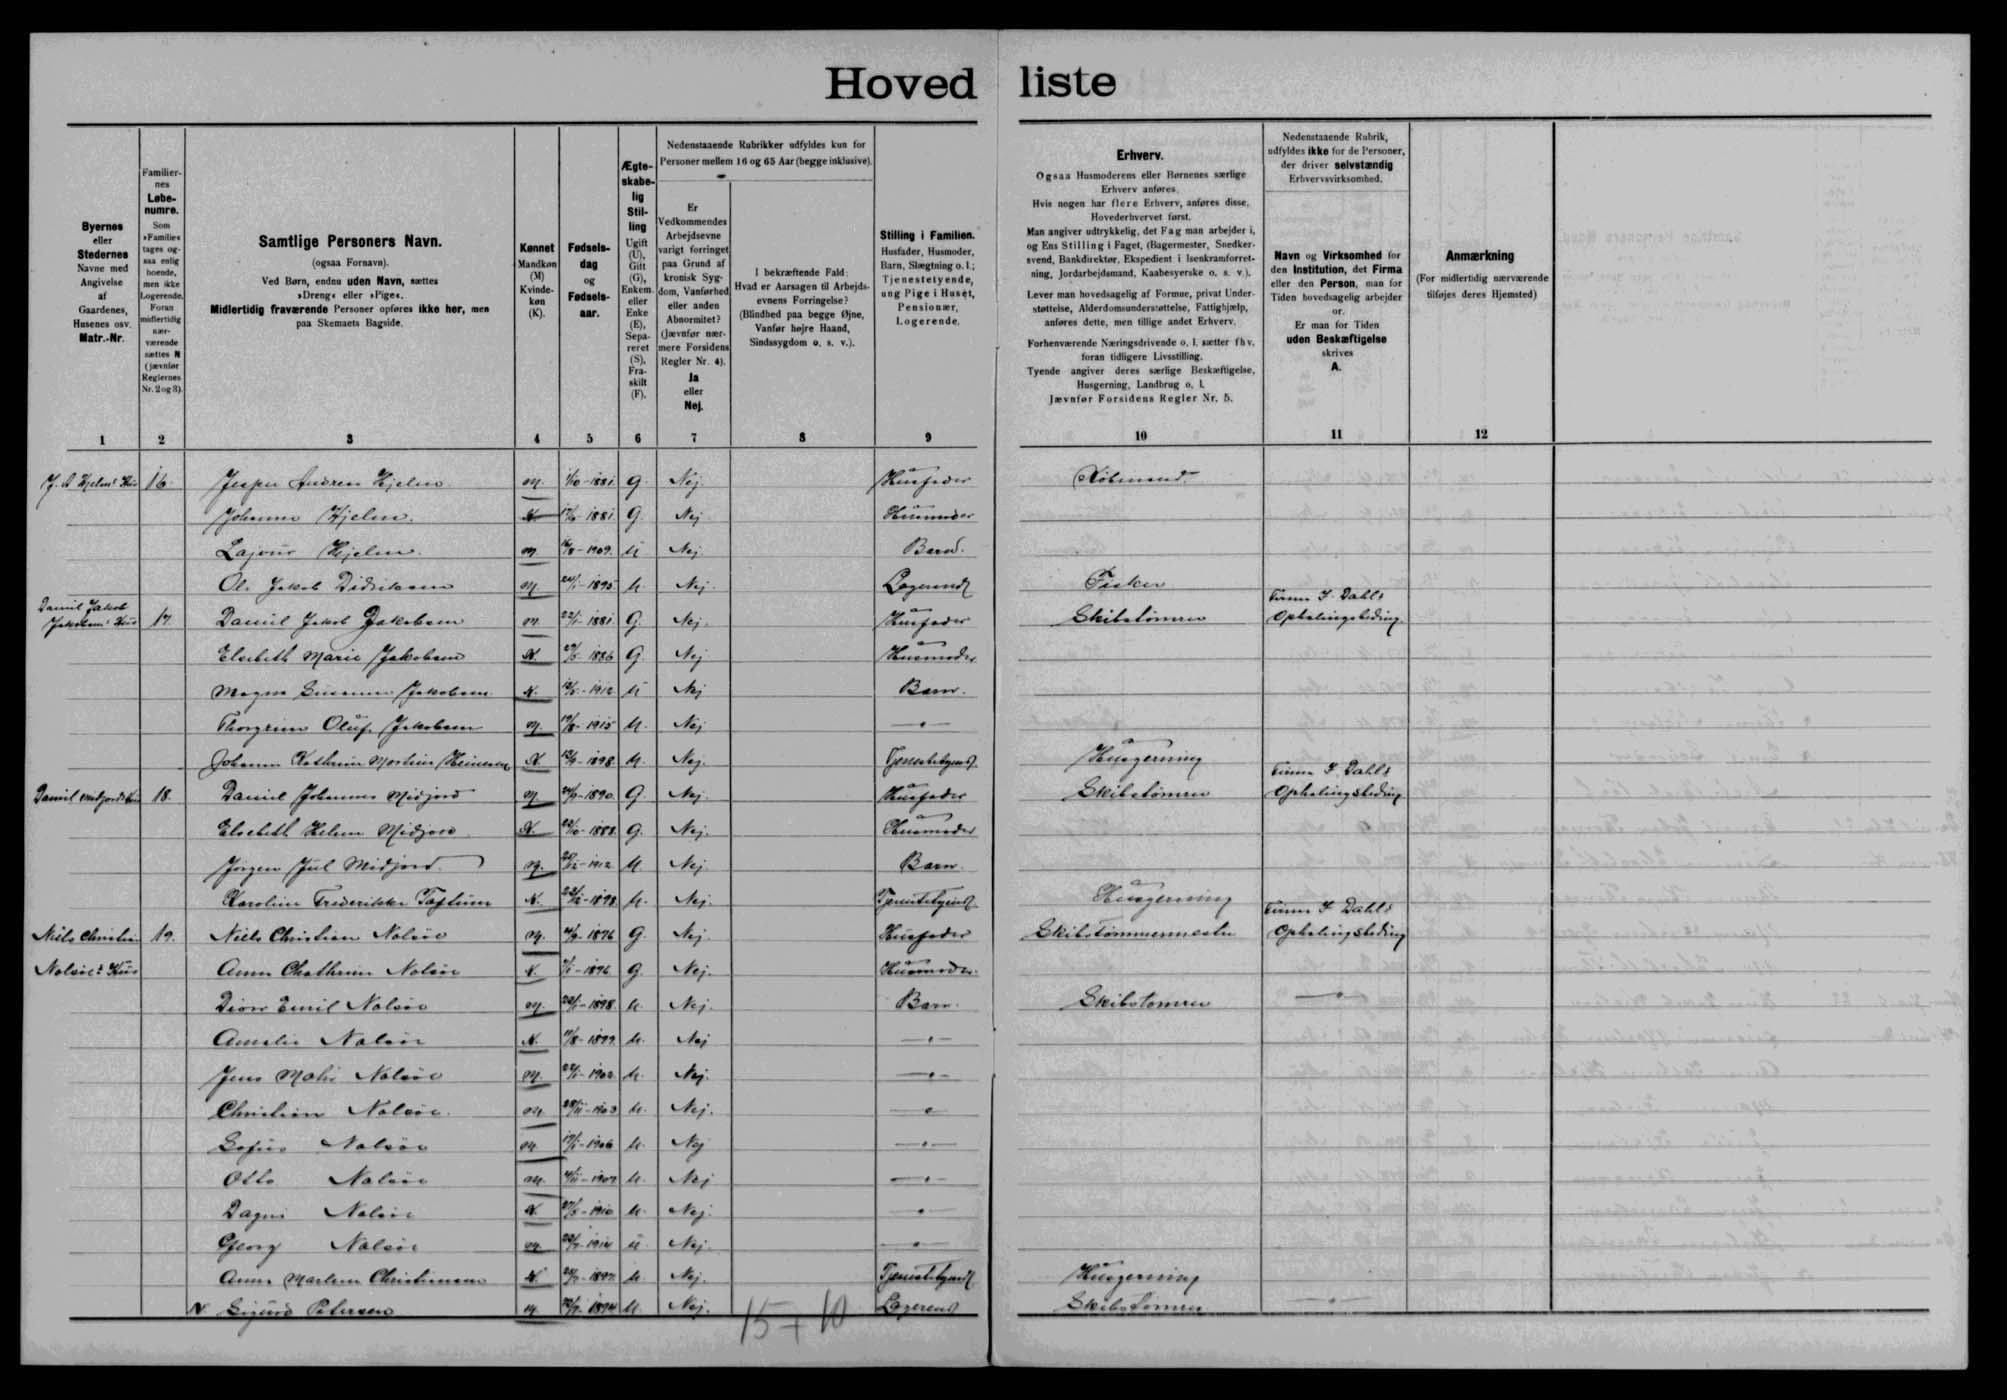 Hoved liste
Byernes
eller
Stedernes
Navne med
Angivelse
af
Gaardenes,
Husenes osv.
Matr.-Nr.
1
Familier-
nes
Løbe-
numre.
Som
»Familie«
tages og-
saa enlig
boende,
men ikke
Logerende.
Foran
midlertidig
nær-
værende
sættes N
(jævnfør
Reglernes
Nr. 2 og 3).
2
Samtlige Personers Navn.
(ogsaa Fornavn).
Ved Børn, endnu uden Navn, sættes
»Dreng« eller »Pige«.
Midlertidig fraværende Personer opføres ikke her, men
paa Skemaets Bagside.
3
Kønnet
Mandkøn
(M)
Kvinde-
køn
(K).
4
Fødsels-
dag
og
Fødsels-
aar.
5
Ægte-
skabe-
lig
Stil-
ling
Ugift
(U),
Gift
(G),
Enkem.
eller
Enke
(E),
Sepa-
reret
(S),
Fra-
skilt
(F).
6
Nedenstaaende Rubrikker udfyldes kun for
Personer mellem 16 og 65 Aar (begge inklusive).
Er
Vedkommendes
Arbejdsevne
varigt forringet
paa Grund af
kronisk Syg-
dom, Vanførhed
eller anden
Abnormitet?
(Jævnfør nær-
mere Forsidens
Regler Nr. 4).
Ja
eller
Nej.
7
I bekræftende Fald:
Hvad er Aarsagen til Arbejds-
evnens Forringelse?
(Blindhed paa begge Øjne,
Vanfør højre Haand,
Sindssygdom o. s. v.).
8
Stilling i Familien.
Husfader, Husmoder,
Barn, Slægtning o. l.;
Tjenestetyende,
ung Pige i Huset,
Pensionær,
Logerende.
9
Erhverv.
Ogsaa Husmoderens eller Børnenes særlige
Erhverv anføres.
Hvis nogen har flere Erhverv, anføres disse,
Hovederhvervet først.
Man angiver udtrykkelig, det Fag man arbejder i,
og Ens Stilling i Faget, (Bagermester, Snedker-
svend, Bankdirektør, Ekspedient i Isenkramforret-
ning, Jordarbejdsmand, Kaabesyerske o. s. v.).
Lever man hovedsagelig af Formue, privat Under-
støttelse, Alderdomsunderstøttelse, Fattighjælp,
anføres dette, men tillige andet Erhverv.
Forhenværende Næringsdrivende o. l. sætter fhv.
foran tidligere Livsstilling.
Tyende angiver deres særlige Beskæftigelse,
Husgerning, Landbrug o. l.
Jævnfør Forsidens Regler Nr. 5.
10
Nedenstaaende Rubrik,
udfyldes ikke for de Personer,
der driver selvstændig
Erhvervsvirksomhed.
Navn og Virksomhed for
den Institution, det Firma
eller den Person, man for
Tiden hovedsagelig arbejder
for.
Er man for Tiden
uden Beskæftigelse
skrives
A.
11
Anmærkning
(For midlertidig nærværende
tilføjes deres Hjemsted)
12
J. A Hjelms Hus 16. Jesper Andreas Hjelm M. 1/10-1881 G. Nej. Husfader Købmand.
Johanna Hjelm. K 1881 G. Nej Husmoder
Hjelm. M 16/8-1909. U Nej. Barn.
Ole Jakob Didriksen M. 1895 U. Nej. Logerende Fisker
Daniel Jakob
Jakobsens Hus 17. Daniel Jakob Jakobsen M. 1881. G. Nej. Husfader Skibstømrer Firma I. Dahls Ophalingsbeding.
Elsebeth Marie Jakobsen K. 1886 G. Nej Husmoder
Magna Susanna Jakobsen K. 1912 U Nej Barn.
Thorgrim Oluf Jakobsen M. 1915 U. Nej —"—
Johanna Kathrina Heinesen K. 1898. U. Nej. Tjenestetyende Husgerning
Daniel Midjords Hus 18. Daniel Johannes Midjord M 1890. G. Nej. Husfader Skibstømrer Firma I. Dahls Ophalingsbeding
Elsebeth Helena Midjord K. 1888. G. Nej. Husmoder
Jørgen Juul Midjord M. 1912 U. Nej. Barn.
Karoline Frederikke Toftum K. 1898. U. Nej. Tjenestetyende Husgerning
Niels Christian 19. Niels Christian Nolsøe M. 1876 G. Nej. Husfader Skibstømmermester Firma I. Dahls Ophalingsbeding
Nolsøes Hus Anna Chathrina Nolsøe K. 1876. G. Nej. Husmoder.
Emil Nolsøe M. 1898. U. Nej. Barn. Skibstømrer —"—
Amalie Nolsøe K. 1899. U. Nej —"—
Jens Mohr Nolsøe M. 1902. U. Nej. —"—
Christian Nolsøe. M. 1903 U. Nej. —"—
Sofus Nolsøe M. 1906 U. Nej —"—
Otto Nolsøe M. 1907 U. Nej —"—
Dagny Nolsøe K. 1910 U. Nej. —"—
Georg Nolsøe M. 1914 U. Nej. —"—
Anna Christiansen K. 1897. U. Nej. Tjenestetyende Husgerning
N Sigurd Petersen M 1894 U. Nej. Logerende Skibstømrer —"—
15 + 10